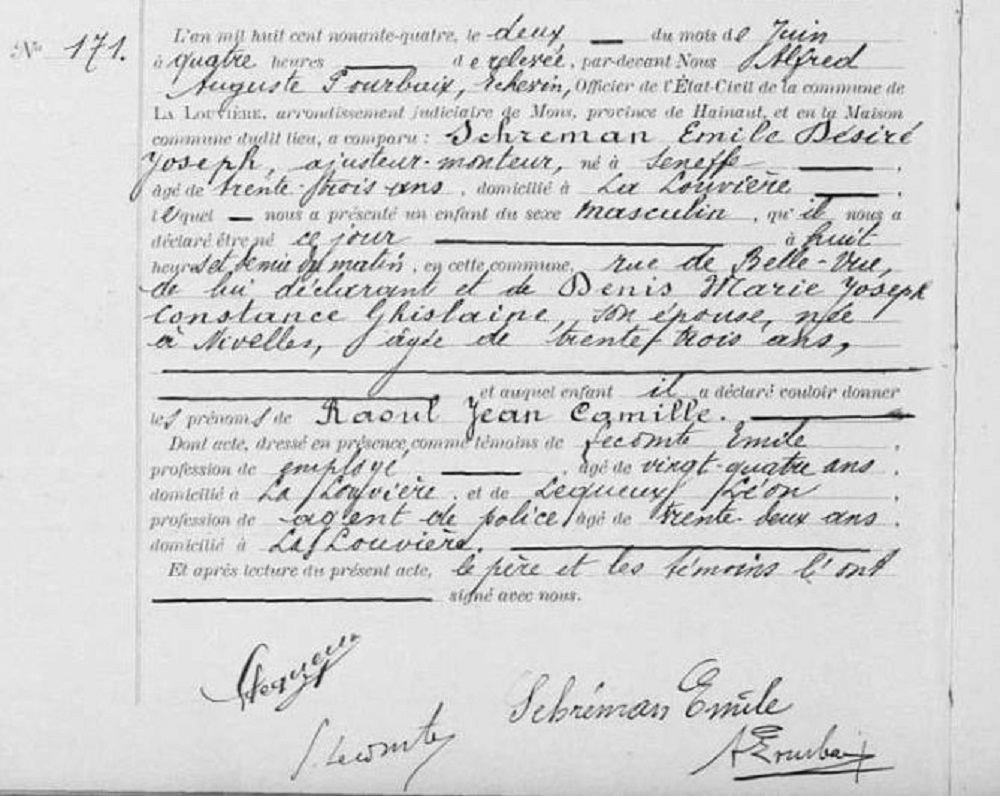 N° 171. L'an mil huit cent nonante-quatre, le deux du mois de Juin
à quatre heures de relevée, par-devant Nous Alfred
Auguste Pourbaix, Echevin, Officier de l'État-Civil de la commune de
LA LOUVIÈRE, arrondissement judiciaire de Mons, province de Hainaut, et en la Maison
commune dudit lieu, a comparu : Schreman Emile Désiré
Joseph, ajusteur-monteur, né à Seneffe ,
âgé de trente-trois ans , domicilié à La Louvière ,
lequel nous a présenté un enfant du sexe masculin , qu' il nous a
déclaré être né ce jour à huit
heures et demie du matin , en cette commune, rue de Belle-Vue,
de lui déclarant et de Denis Marie Joseph
Constance Ghislaine, son épouse, née
à Nivelles, âgée de trente-trois ans,
et auquel enfant il a déclaré vouloir donner
les prénoms de Raoul Jean Camille.
Dont acte, dressé en présence, comme témoins de Lecomte Emile ,
profession de employé , âgé de vingt-quatre ans ,
domicilié à La Louvière , et de Lequeux Léon ,
profession de agent de police âgé de trente-deux ans ,
domicilié à La Louvière.
Et après lecture du présent acte, le père et les témoins l'ont
signé avec nous.
Lequeux
Schréman Emile
Lecomte
A Pourbaix